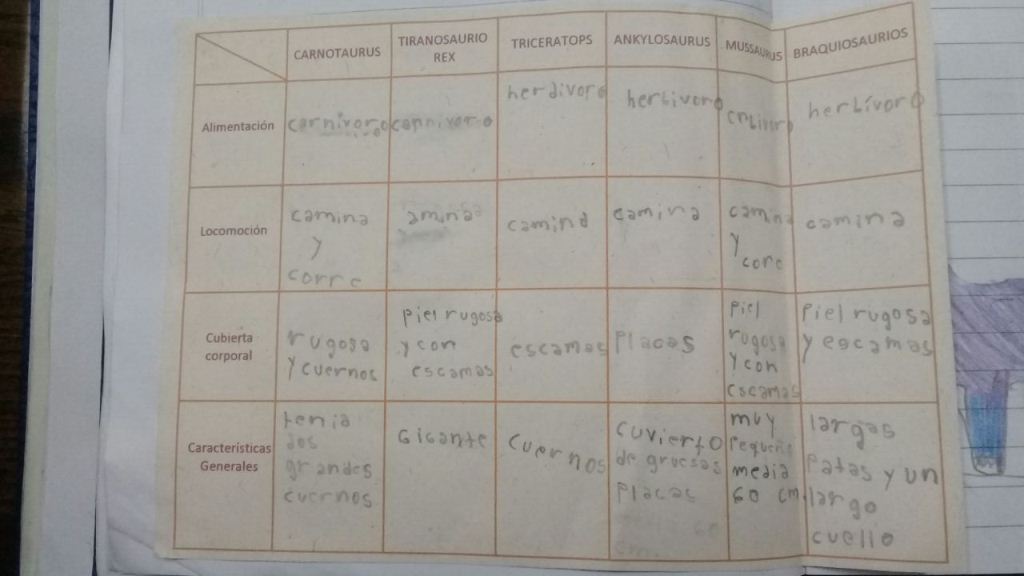 CARNOTAURUS TIRANOSAURIO REX TRICERATOPS ANKYLOSAURUS MUSSAURUS BRAQUIOSAURIOS
Alimentación carnivoro carnivoro herdivoro herbivoro herbívoro
Locomoción camina y corre amina camina camina camina y corc camina
Cubierta corporal rugosa y cuernos piel rugosa y con escamas escamas placas piel rugosa y con escamas piel rugosa y escamas
Características Generales tenia dos grandes cuernos Gigante cuernos cuvierto de gruesas placas muy pequeño media 60 cm largas patas y un largo cuello